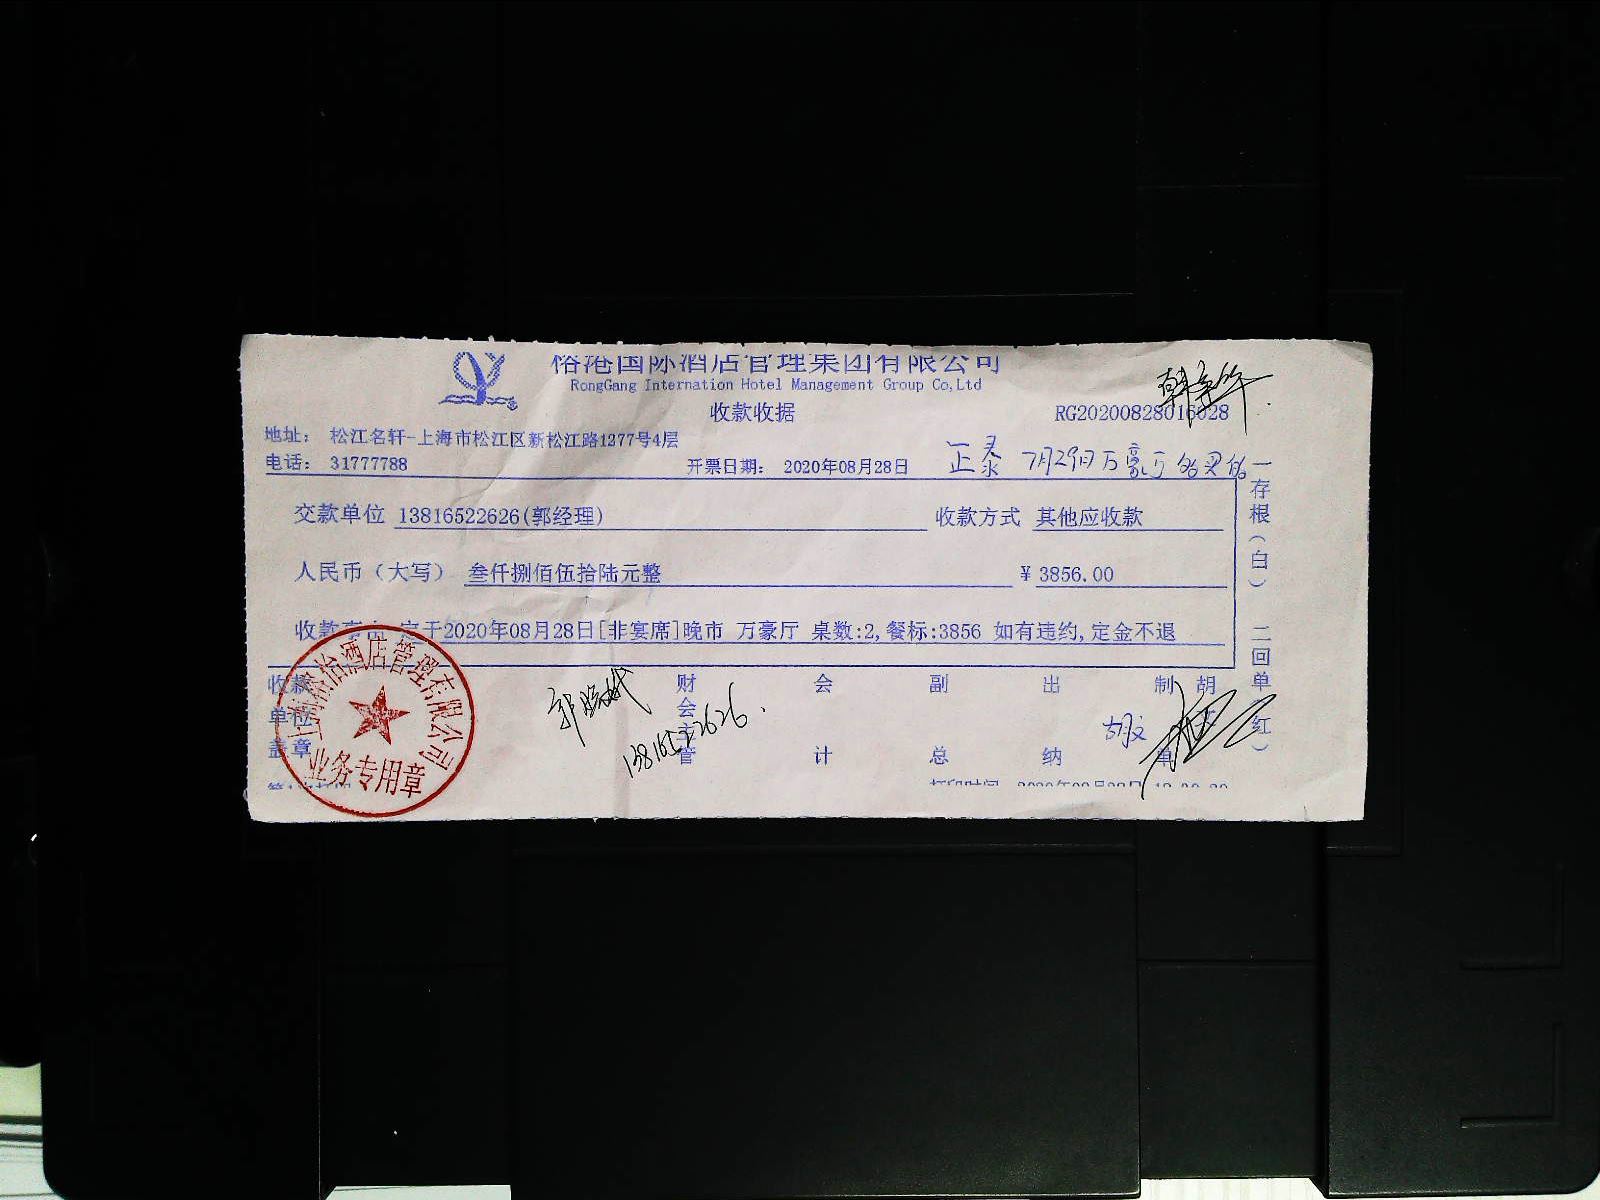 港国际酒店管理集团有限公司
RongGang Internation Hotel Management Group Co,Ltd
收款收据
RG20200828016028
地址： 松江名轩-上海市松江区新松江路1277号4层
电话： 31777788
开票日期： 2020年08月28日
7月29日万豪厅
交款单位 13816522626(郭经理)
收款方式 其他应收款
人民币（大写） 叁仟捌佰伍拾陆元整
￥ 3856.00
收款事由 定于2020年08月28日[非宴席]晚市 万豪厅 桌数:2,餐标:3856 如有违约,定金不退
一存根（白） 二回单（红）
收款单位盖章
财会主管
会计
副总
出纳
制单
胡文
13816522626.
酒店管理有限公司
业务专用章